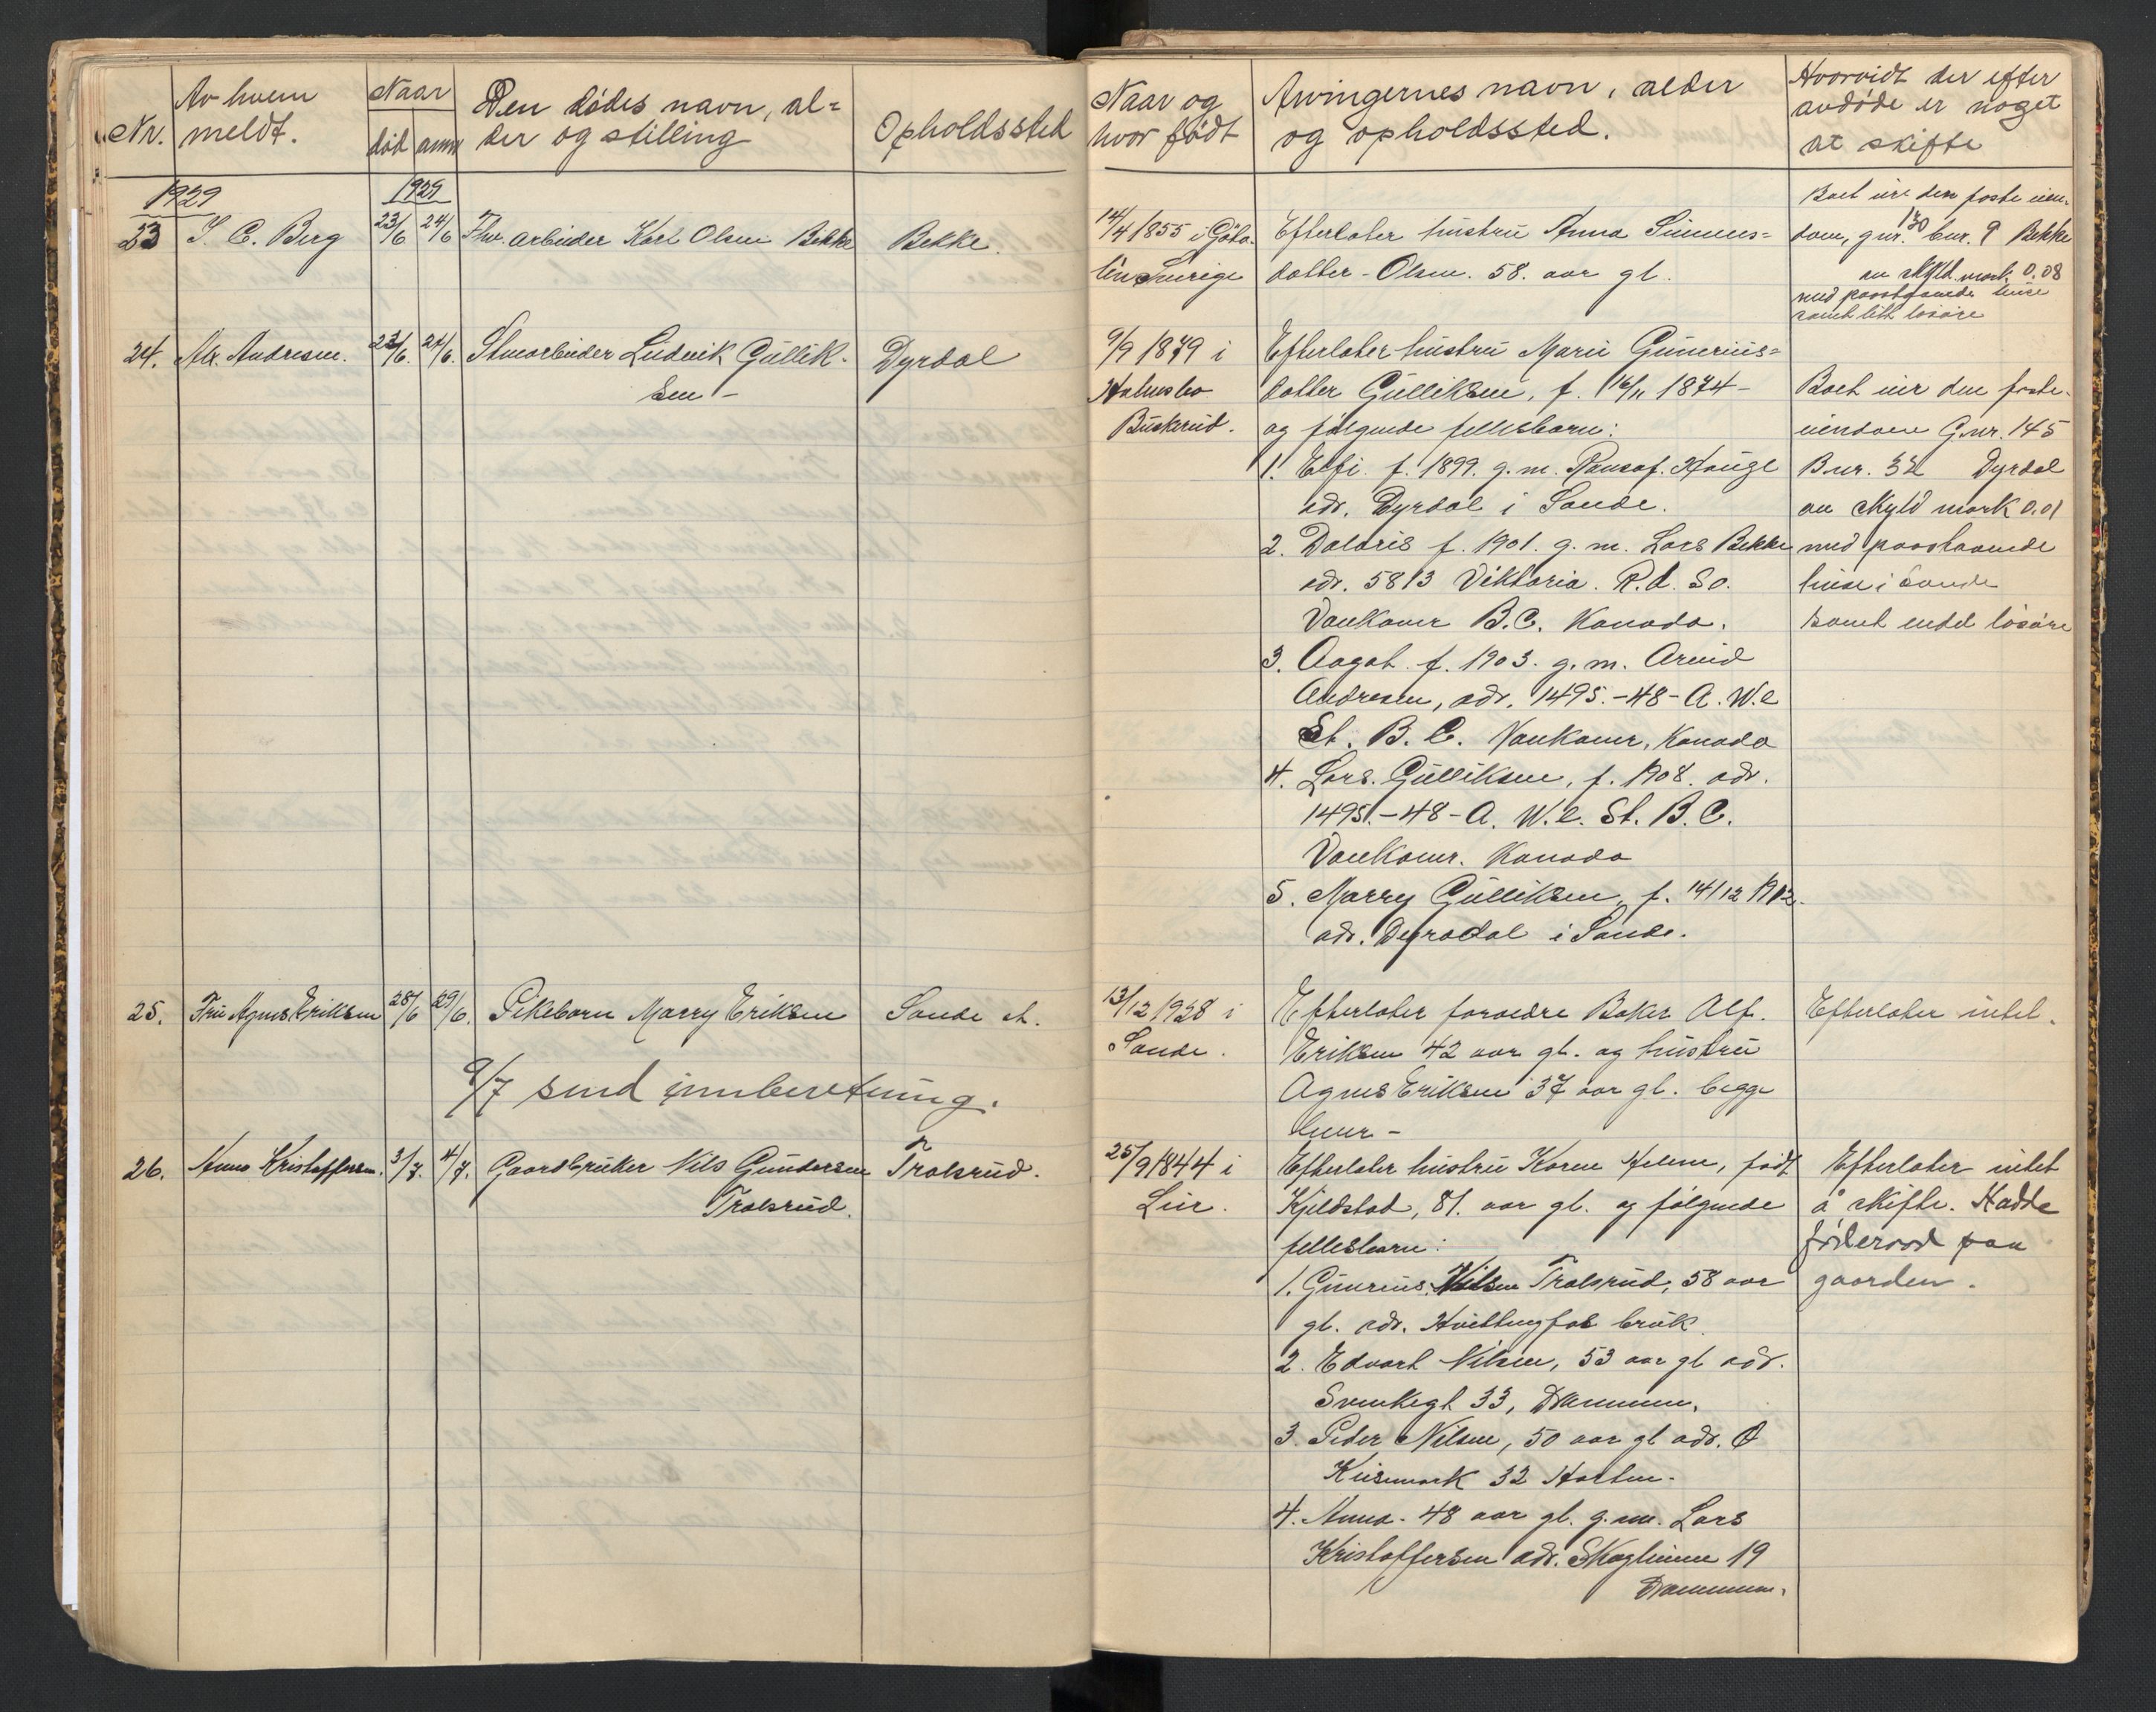 Nr.
Av hvem
meldt.
Naar
død anm
Den dødes navn, al=
der og stilling
Opholdssted
1929
1929
23 S. C. Berg 23/6 24/6 Fhv. arbeider Karl Olsen Bekke Bekke.
24. Alx. Andresen. 23/6. 24/6. Stuearbeider Ludvik Gullik- Dyrdal
sen -
25. Fru Agnes Eriksen 28/6 29/6. Pikebarn Marry Eriksen Sande st.
9/7 send innberetning.
26. Anna Kristoffersen. 3/7. 4/7. Gaardbruker Nils Gundersen Trolsrud.
Trolsrud.
Naar og
hvor født
Arvingernes navn, alder
og opholdssted.
Hvorvidt der efter
avdøde er noget
at skifte
14/4 1855 i Göta-
len Sverige
Efterlater hustru Anna Simens=
datter-Olsen. 58. aar gl.
Boet eier den faste eien-
dom, gnr. 130 bnr. 9 Bekke
av skyld mark 0.08
med paastaaende huse
samt litt løsøre
9/9 1879 i
Holmsbo
Buskerud.
Efterlater hustru Marie Gunerius=
datter Gulliksen, f. 16/11 1874-
og følgende fellesbarn:
1. Elfi f. 1899. g.m. Hauge
adr. Dyrdal i Sande.
2. Daloris f. 1901. g. m. Lars Bekke
adr. 5813 Viktoria. R.d. So.
Vankouver B.C. Kanada.
3. Aagot f. 1903. g. m. Arvid
Andresen, adr. 1495.-48-A. W.e
St. B. C. Vankouver, Kanada
4. Lars. Gulliksen, f. 1908. adr.
1495.-48-A. W.e. St. B.C.
Vankouver. Kanada
5. Marry Gulliksen, f. 14/12 1912.
adr. Dyrdal i Sande.
Boet eier den faste
eiendom G.nr. 145
B.nr. 32 Dyrdal
av skyld mark 0.01
med paastaaende
huse i Sande
samt endel løsøre
13/12 1928 i
Sande.
Efterlater foreldre Baker Alf.
Eriksen 42 aar gl. og hustru
Agnes Eriksen 37 aar gl. begge
lever -
Efterlater intet.
25/9 1844 i
Lier.
Efterlater hustru Karen Helene, født
Kjeldstad, 81. aar gl. og følgende
fellesbarn:
1. Gunerius Nilsen Trolsrud, 58 aar
gl. adr. Hvittingfos bruk.
2. Edvart Nilsen, 53 aar gl adr.
Svenkegt 33, Drammen.
3. Peder Nilsen, 50 aar gl adr. Ø
32 Horten.
4. Anna. 48 aar gl. g.m. Lars
Kristoffersen adr. Skoglinne 19
Drammen.
Efterlater intet
å skifte. Hadde
føderaad paa
gaarden.